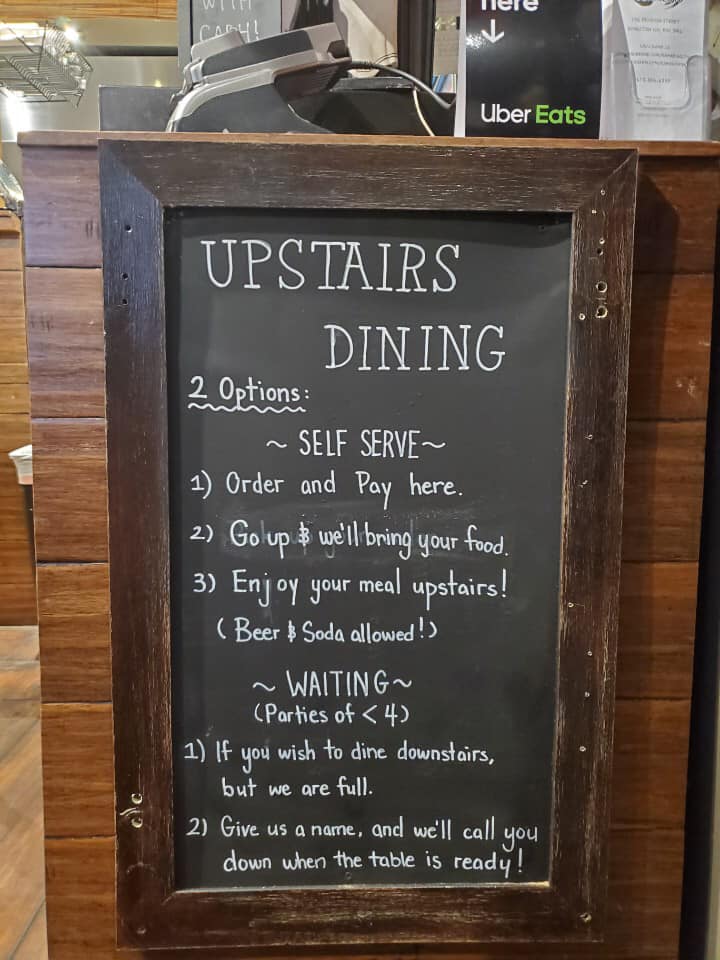 WITH
CASH!
here
↓
Uber Eats
UPSTAIRS
DINING
2 Options:
~ SELF SERVE ~
1) Order and Pay here.
2) Go up & we'll bring your food.
3) Enjoy your meal upstairs!
( Beer & Soda allowed! )
~ WAITING ~
(Parties of < 4)
1) If you wish to dine downstairs,
but we are full.
2) Give us a name, and we'll call you
down when the table is ready!